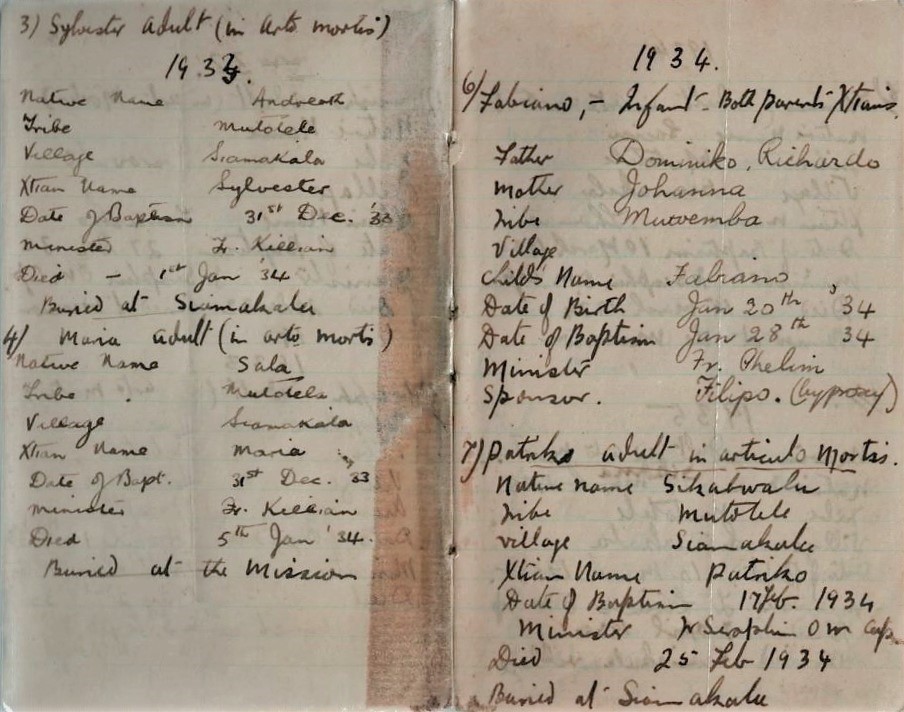 3) Sylvester adult (in arto mortis)
1933.
Native Name Andreath
Tribe Mutotele
Village Siamakala
Xtian Name Sylvester
Date of Baptism 31st Dec. '33
Minister Fr. Killian
Died – 1st Jan '34
Buried at Siamakalu
4) Maria adult (in arto mortis)
Native Name Sala
Tribe Mutotela
Village Siamakala
Xtian Name Maria
Date of Bapt. 31st Dec. 33
Minister Fr. Killian
Died 5th Jan '34.
Buried at the Mission
1934.
6) Fabiano, – Infant – Both parents Xtians.
Father Dominiko, Richardo
Mother Johanna
Tribe Muwemba
Village
Child's Name Fabiano
Date of Birth Jan 20th, 34
Date of Baptism Jan 28th 34
Minister Fr. Phelim
Sponsor. Filipo. (by proxy)
7) Patriko adult in articulo Mortis.
Native name Sikabwalu
Tribe Mutotele
Village Siamakalu
Xtian Name Patriko
Date of Baptism 17 Feb. 1934
Minister Fr Seraphin O M Cap.
Died 25 Feb 1934
Buried at Siamakalu